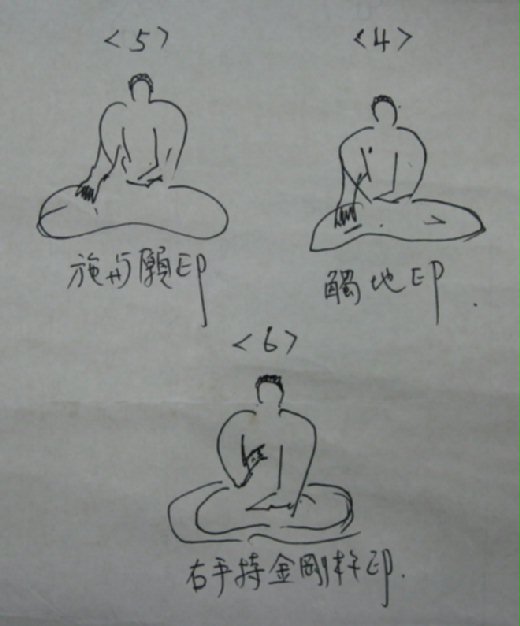 <5>
<4>
施与願印
觸地印
<6>
右手持金剛杵印.